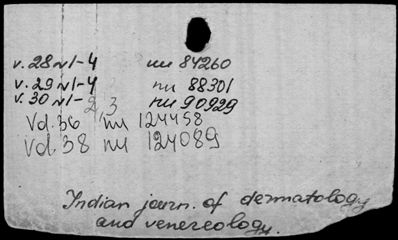 v. 28 N1-4 nu 84260
v. 29 N1-4 nu 88301
v. 30 N1-2,3 nu 90929
Vd. 36 nu 124458
Vd. 38 nu 124089
Indian journ. of dermatology
and venereology.